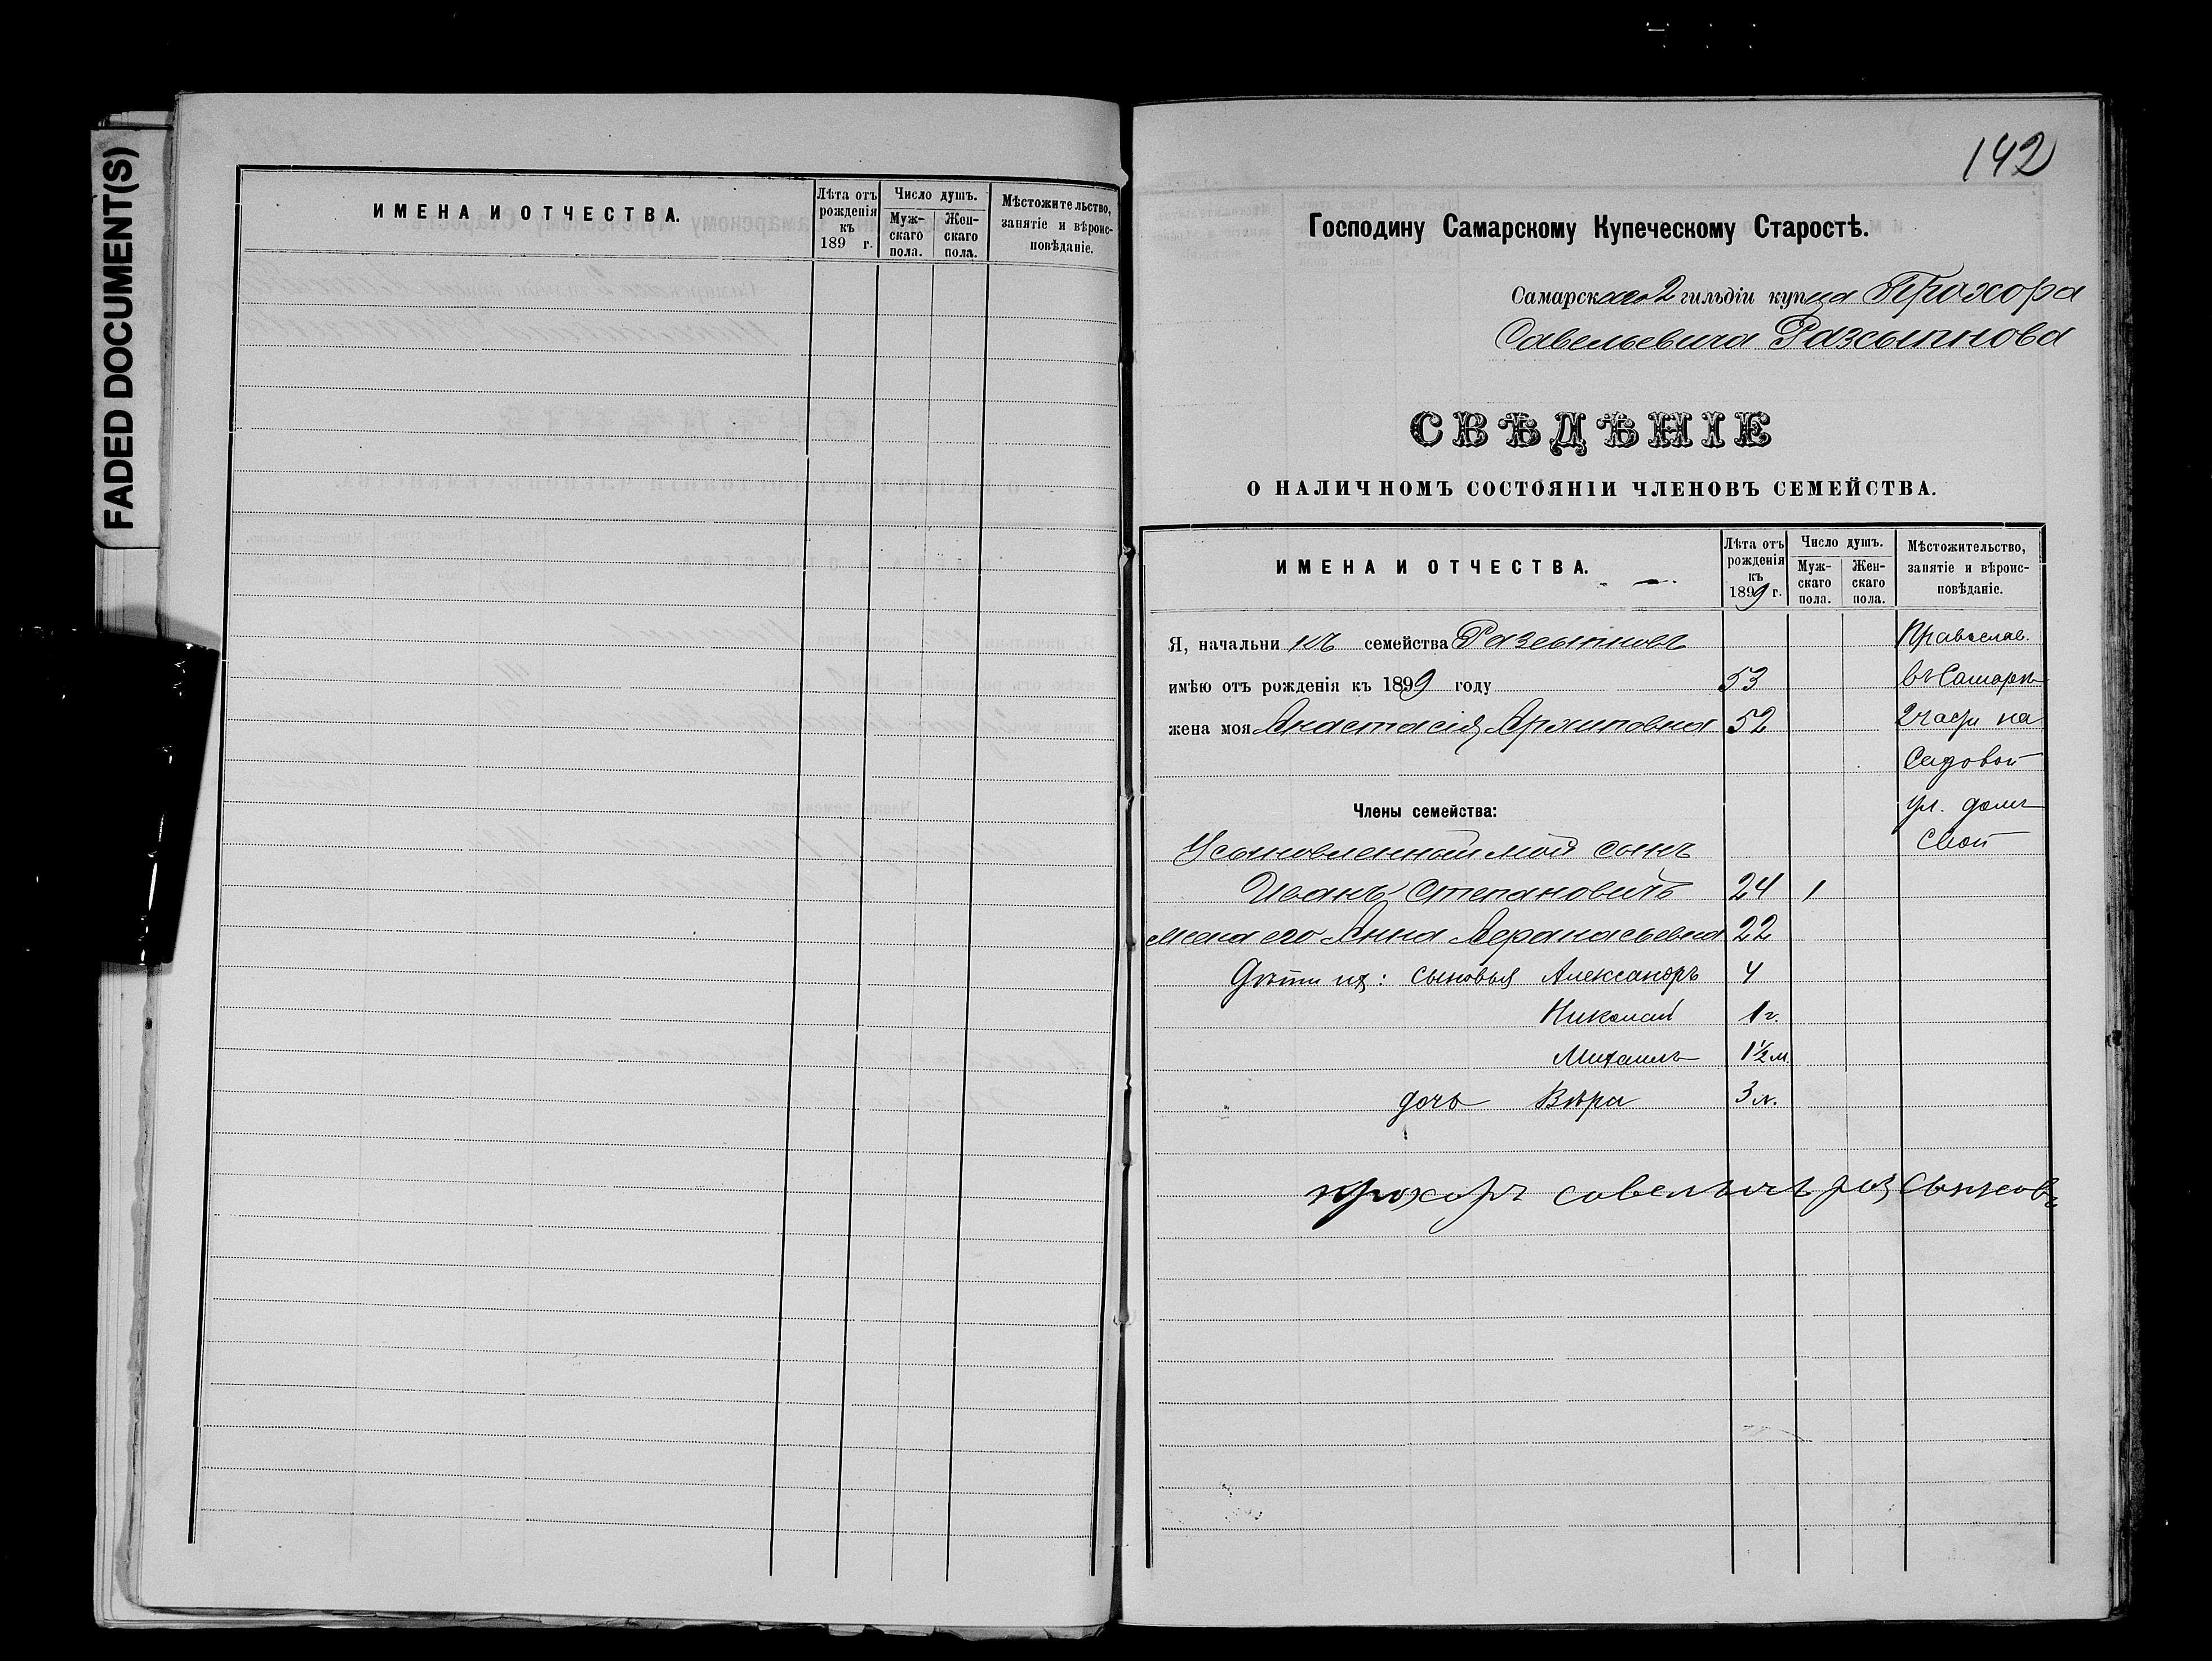 FADED DOCUMENT(S)
ИМЕНА И ОТЧЕСТВА.
Лѣта отъ рожденія къ 189 г.
Число душъ.
Муж-скаго пола.
Жен-скаго пола.
Мѣстожительство, занятіе и вѣроис-повѣданіе.
142
Господину Самарскому Купеческому Старостѣ.
Самарскаго 2 гильдіи купца Прохора
Савельевича Разсыпнова
СВѢДѢНІЕ
О НАЛИЧНОМЪ СОСТОЯНІИ ЧЛЕНОВЪ СЕМЕЙСТВА.
ИМЕНА И ОТЧЕСТВА.
Лѣта отъ рожденія къ 1899 г.
Число душъ.
Муж-скаго пола.
Жен-скаго пола.
Мѣстожительство, занятіе и вѣроис-повѣданіе.
Я, начальникъ семейства Разсыпновъ Православ.
имѣю отъ рожденія къ 1899 году 53 въ Самарѣ
жена моя Анастасія Архиповна 52 2 части на
Садовой
Члены семейства: ул. домъ
Усыновленный мой сынъ свой
Иванъ Степановичъ 24 1
жена его Анна Афанасьевна 22
Дѣти их: сыновья Александръ 4
Николай 1 г.
Михаилъ 1½ м.
дочь Вѣра 3 л.
прохоръ савельичъ разсыпновъ